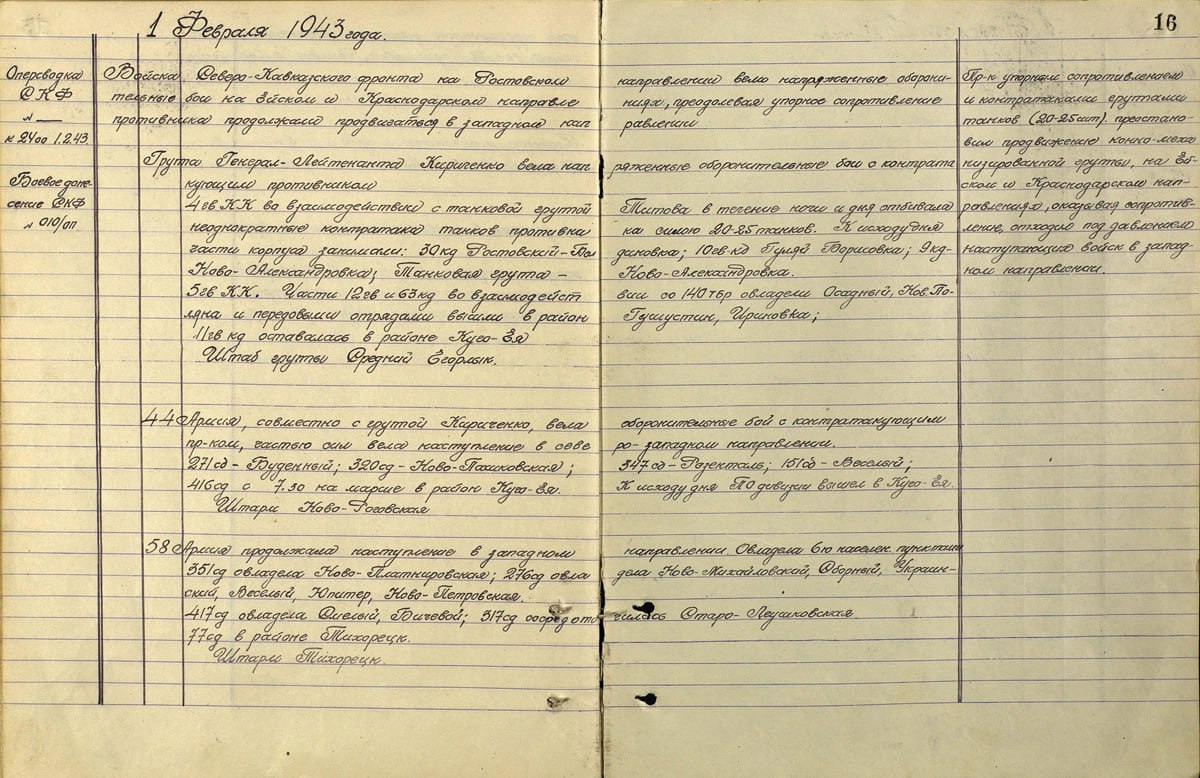 16
1 Февраля 1943 года.
Оперсводка
СКФ
№ —
к 2400 1.2.43.
Боевое доне-
сение СКФ
№ 010/оп
Войска Северо-Кавказского фронта на Ростовском направлении вели напряженные оборони-
тельные бои на Ейском и Краснодарском направле ниях, преодолевая упорное сопротивление
противника продолжали продвигаться в западном нап равлении
Группа Генерал-Лейтенанта Кириченко вела нап ряженные оборонительные бои с контрата
кующим противником
4 гв КК во взаимодействии с танковой группой Титова в течение ночи и дня отбивала
неоднократные контратаки танков противни ка силою 20-25 танков. К исходу дня
части корпуса занимали: 30 кд Ростовский-Бог дановка; 10 гв кд Гуляй Борисовка; 9 кд-
Ново-Александровка; Танковая группа – Ново-Александровка.
5 гв КК. Части 12 гв и 63 кд во взаимодейст вии со 140 тбр овладели Осадный, Нов. По-
ляна и передовыми отрядами вышли в район Гушустин, Ириновка;
11 гв кд оставалась в районе Куго-Ея
Штаб группы Средний Егорлык.
44 Армия, совместно с группой Кириченко, вела оборонительные бой с контратакующим
пр-ком, частью сил вела наступление в севе ро-западном направлении.
271 сд – Буденный; 320 сд – Ново-Пашковская; 347 сд – Розенталь; 151 сд – Веселый;
416 сд с 7.30 на марше в район Куго-Ея. К исходу дня ПО дивизии вышел в Куго-Ея.
Штарм Ново-Роговская
58 Армия продолжала наступление в западном направлении. Овладела 6ю населен. пунктами
351 сд овладела Ново-Платнировская; 276 сд овла дела Ново-Михайловский, Сборный, Украин-
ский, Веселый, Юпитер, Ново-Петровская.
417 сд овладела Смелый, Бичевой; 317 сд сосредото чилась Старо-Леушковская.
77 сд в районе Тихорецк.
Штарм Тихорецк.
Пр-к упорным сопротивлением
и контратаками группами
танков (20-25 шт). приостано-
вил продвижение конно-меха
низированной группы, на Ей-
ском и Краснодарском нап-
равлениях, оказывая сопротив-
ление, отходил под давлением
наступающих войск в запад-
ном направлении.